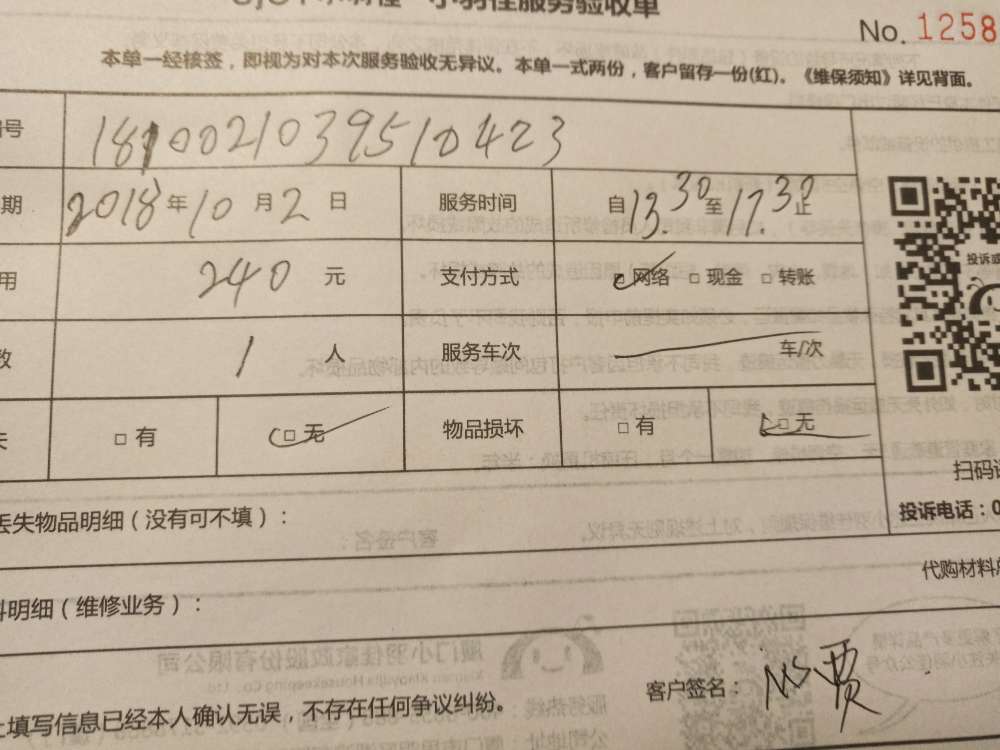 小羽佳服务验收单
No. 1258
本单一经核签，即视为对本次服务验收无异议。本单一式两份，客户留存一份(红)。《维保须知》详见背面。
号 1810021039510423
期 2018年10月2日 服务时间 自13.30至17.30止
用 240元 支付方式 □网络 □现金 □转账
数 1人 服务车次 车/次
失 □有 □无 物品损坏 □有 □无
投诉或
扫码
投诉电话：0
丢失物品明细（没有可不填）：
代购材料
料明细（维修业务）：
客户签名： MS贾
上填写信息已经本人确认无误，不存在任何争议纠纷。